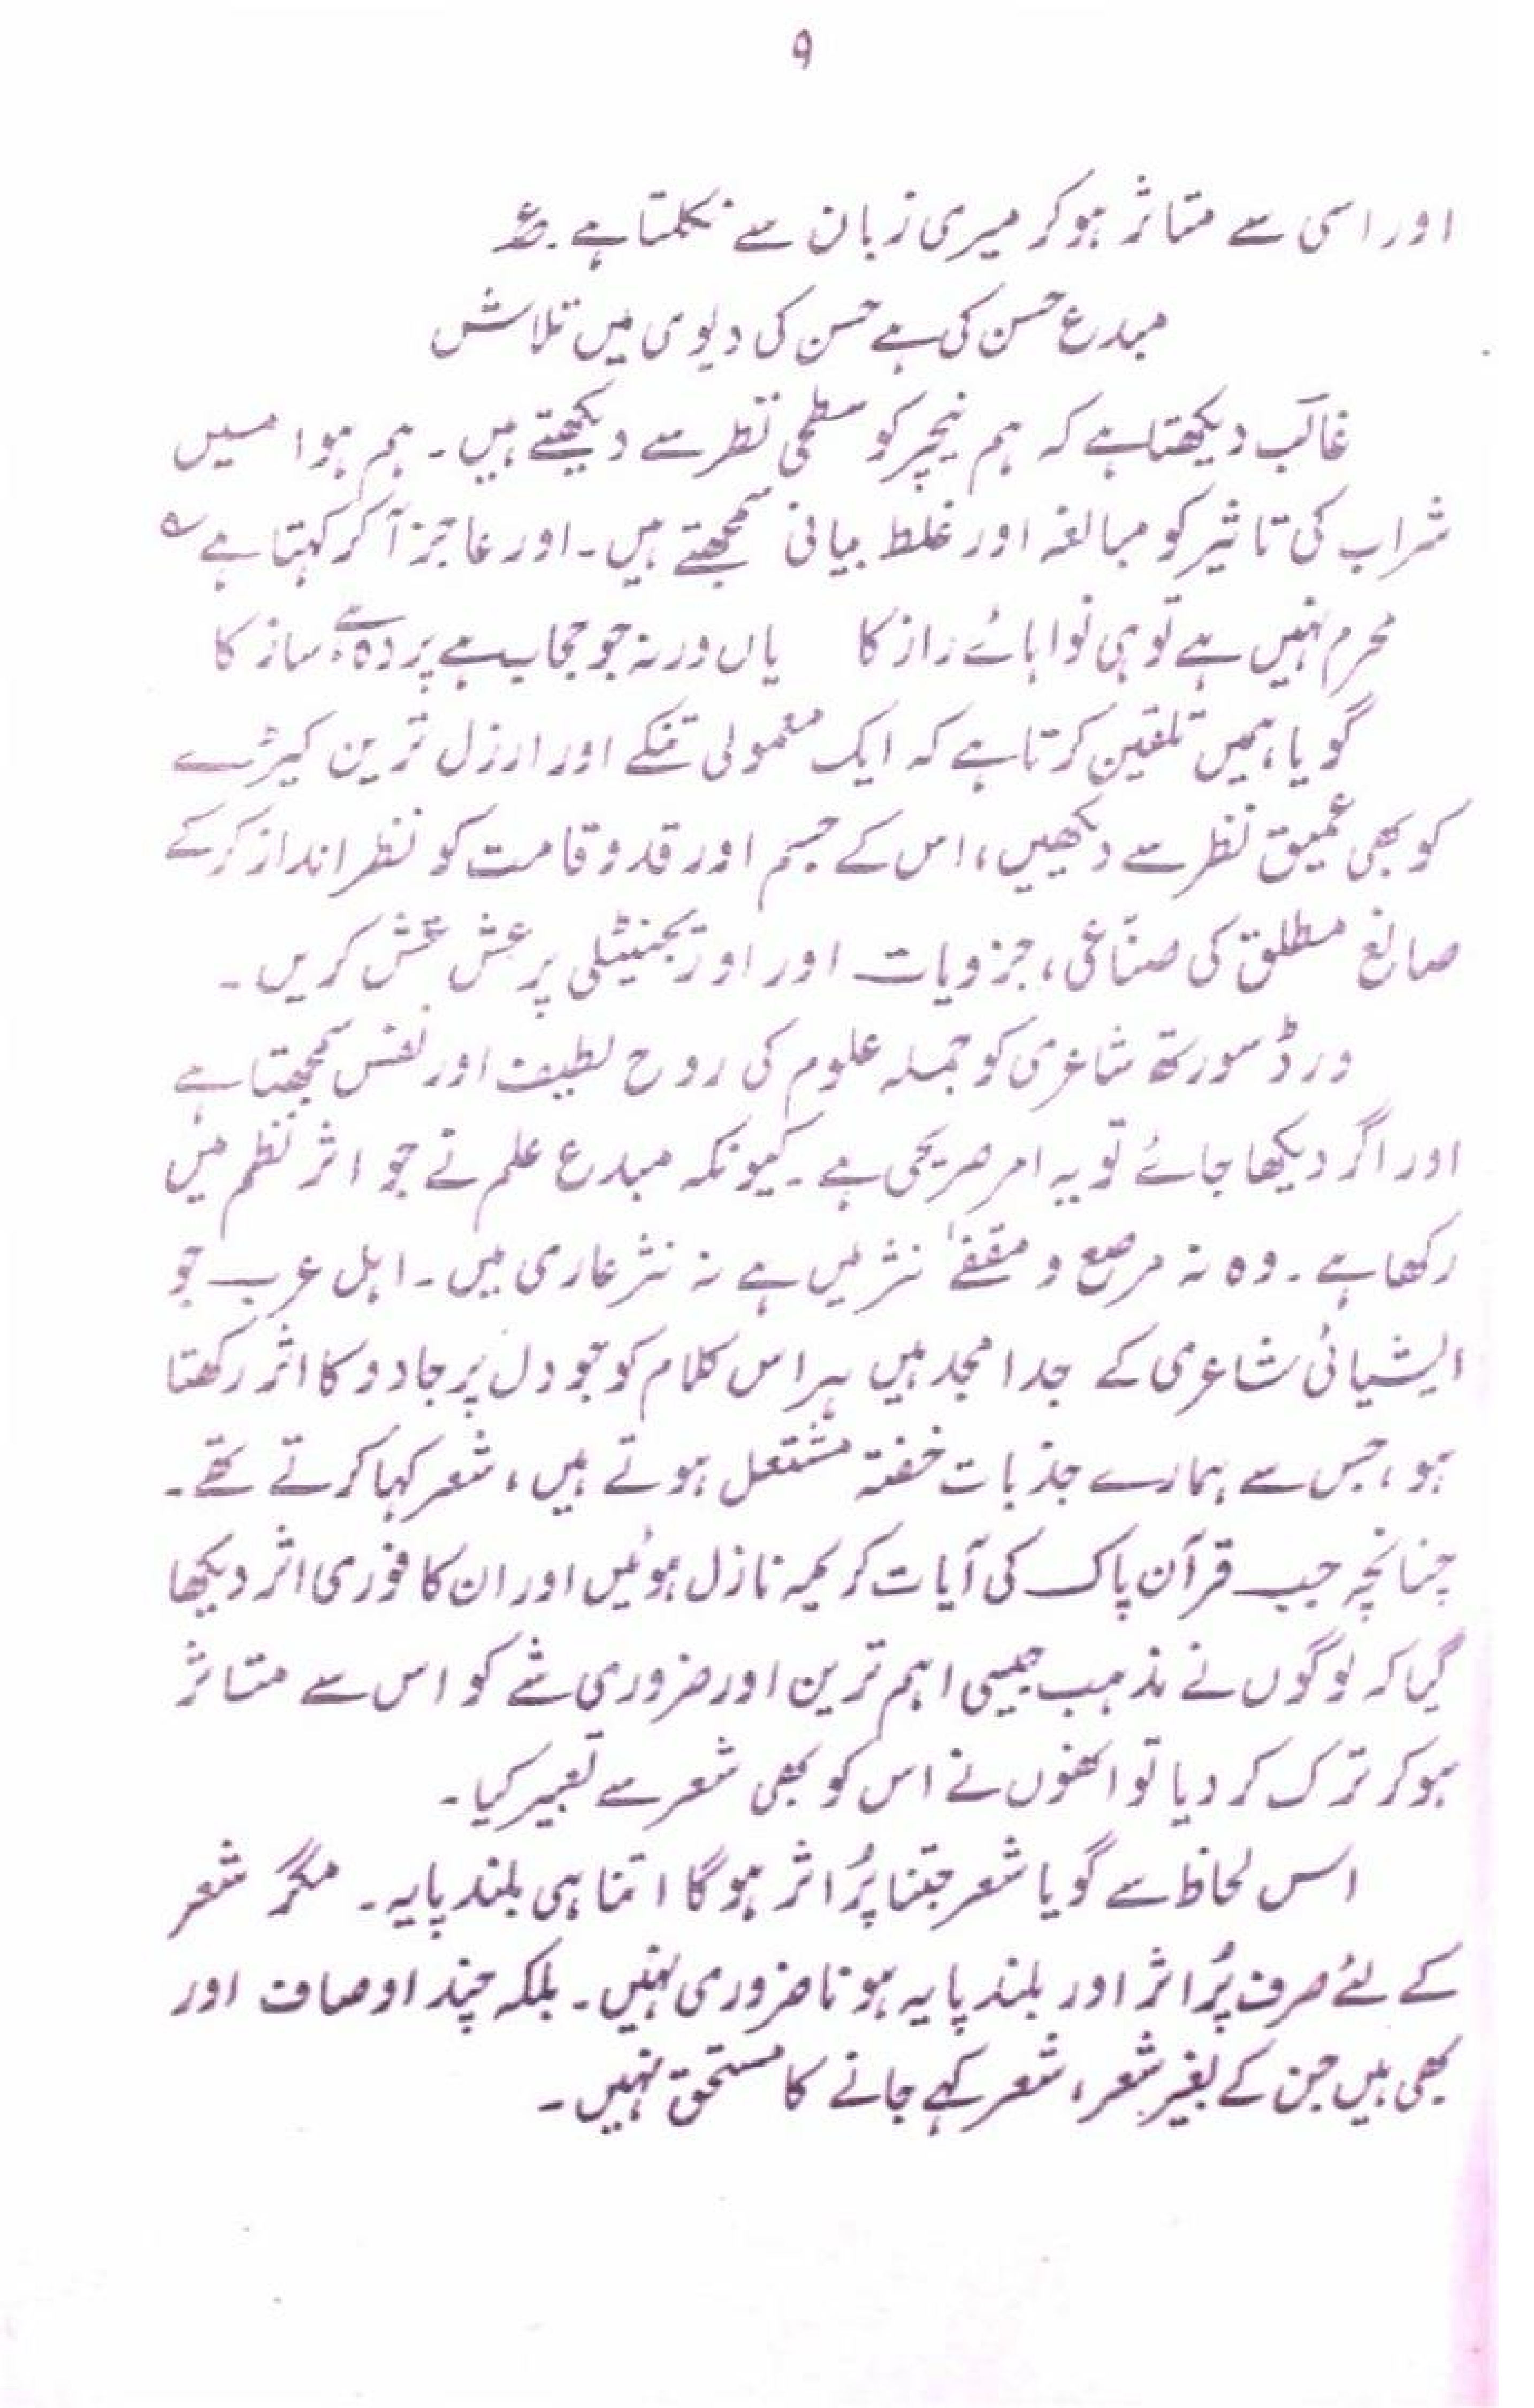 ۹
اور اسی سے متاثر ہوکر میری زبان سے نکلتا ہے۔ ع
مبدع حسن کی ہے حسن کی دیوی میں تلاش
غالب دیکھتا ہے کہ ہم نیچر کو سطحی نظر سے دیکھتے ہیں۔ ہم ہوا میں
شراب کی تاثیر کو مبالغہ اور غلط بیانی سمجھتے ہیں۔ اور عاجز آکر کہتا ہے ؎
محرم نہیں ہے تو ہی نواہائے راز کا یاں ورنہ جو حجاب ہے پردہ ہے ساز کا
گویا ہمیں تلقین کرتا ہے کہ ایک معمولی تنکے اور ارزل ترین کیڑے
کو بھی عمیق نظر سے دیکھیں، اس کے جسم اور قد و قامت کو نظر انداز کرکے
صانع مطلق کی صنّاعی، جزویات اور اوریجنیٹلی پر عش عش کریں۔
ورڈسورتھ شاعری کو جملہ علوم کی روح لطیف اور نفس سمجھتا ہے
اور اگر دیکھا جائے تو یہ امر صریحی ہے۔ کیونکہ مبدع علم نے جو اثر نظم میں
رکھا ہے۔ وہ نہ مرصع و مقفےٰ نثر میں ہے نہ نثر عاری میں۔ اہل عرب جو
ایشیائی شاعری کے جد امجد ہیں ہر اس کلام کو جو دل پر جادو کا اثر رکھتا
ہو، جس سے ہمارے جذبات خفتہ مشتعل ہوتے ہیں، شعر کہا کرتے تھے۔
چنانچہ جب قرآن پاک کی آیات کریمہ نازل ہوئیں اور ان کا فوری اثر دیکھا
گیا کہ لوگوں نے مذہب جیسی اہم ترین اور ضروری شے کو اس سے متاثر
ہوکر ترک کر دیا تو انھوں نے اس کو بھی شعر سے تعبیر کیا۔
اس لحاظ سے گویا شعر جتنا پُر اثر ہوگا اتنا ہی بلند پایہ۔ مگر شعر
کے لئے صرف پُر اثر اور بلند پایہ ہونا ضروری نہیں۔ بلکہ چند اوصاف اور
بھی ہیں جن کے بغیر شعر، شعر کہے جانے کا مستحق نہیں۔